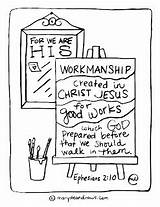 FOR WE ARE
HIS
WORKMANSHIP
created in
CHRIST JESUS
for good works
which GOD
prepared before
that we should
walk in them.
Ephesians 2:10